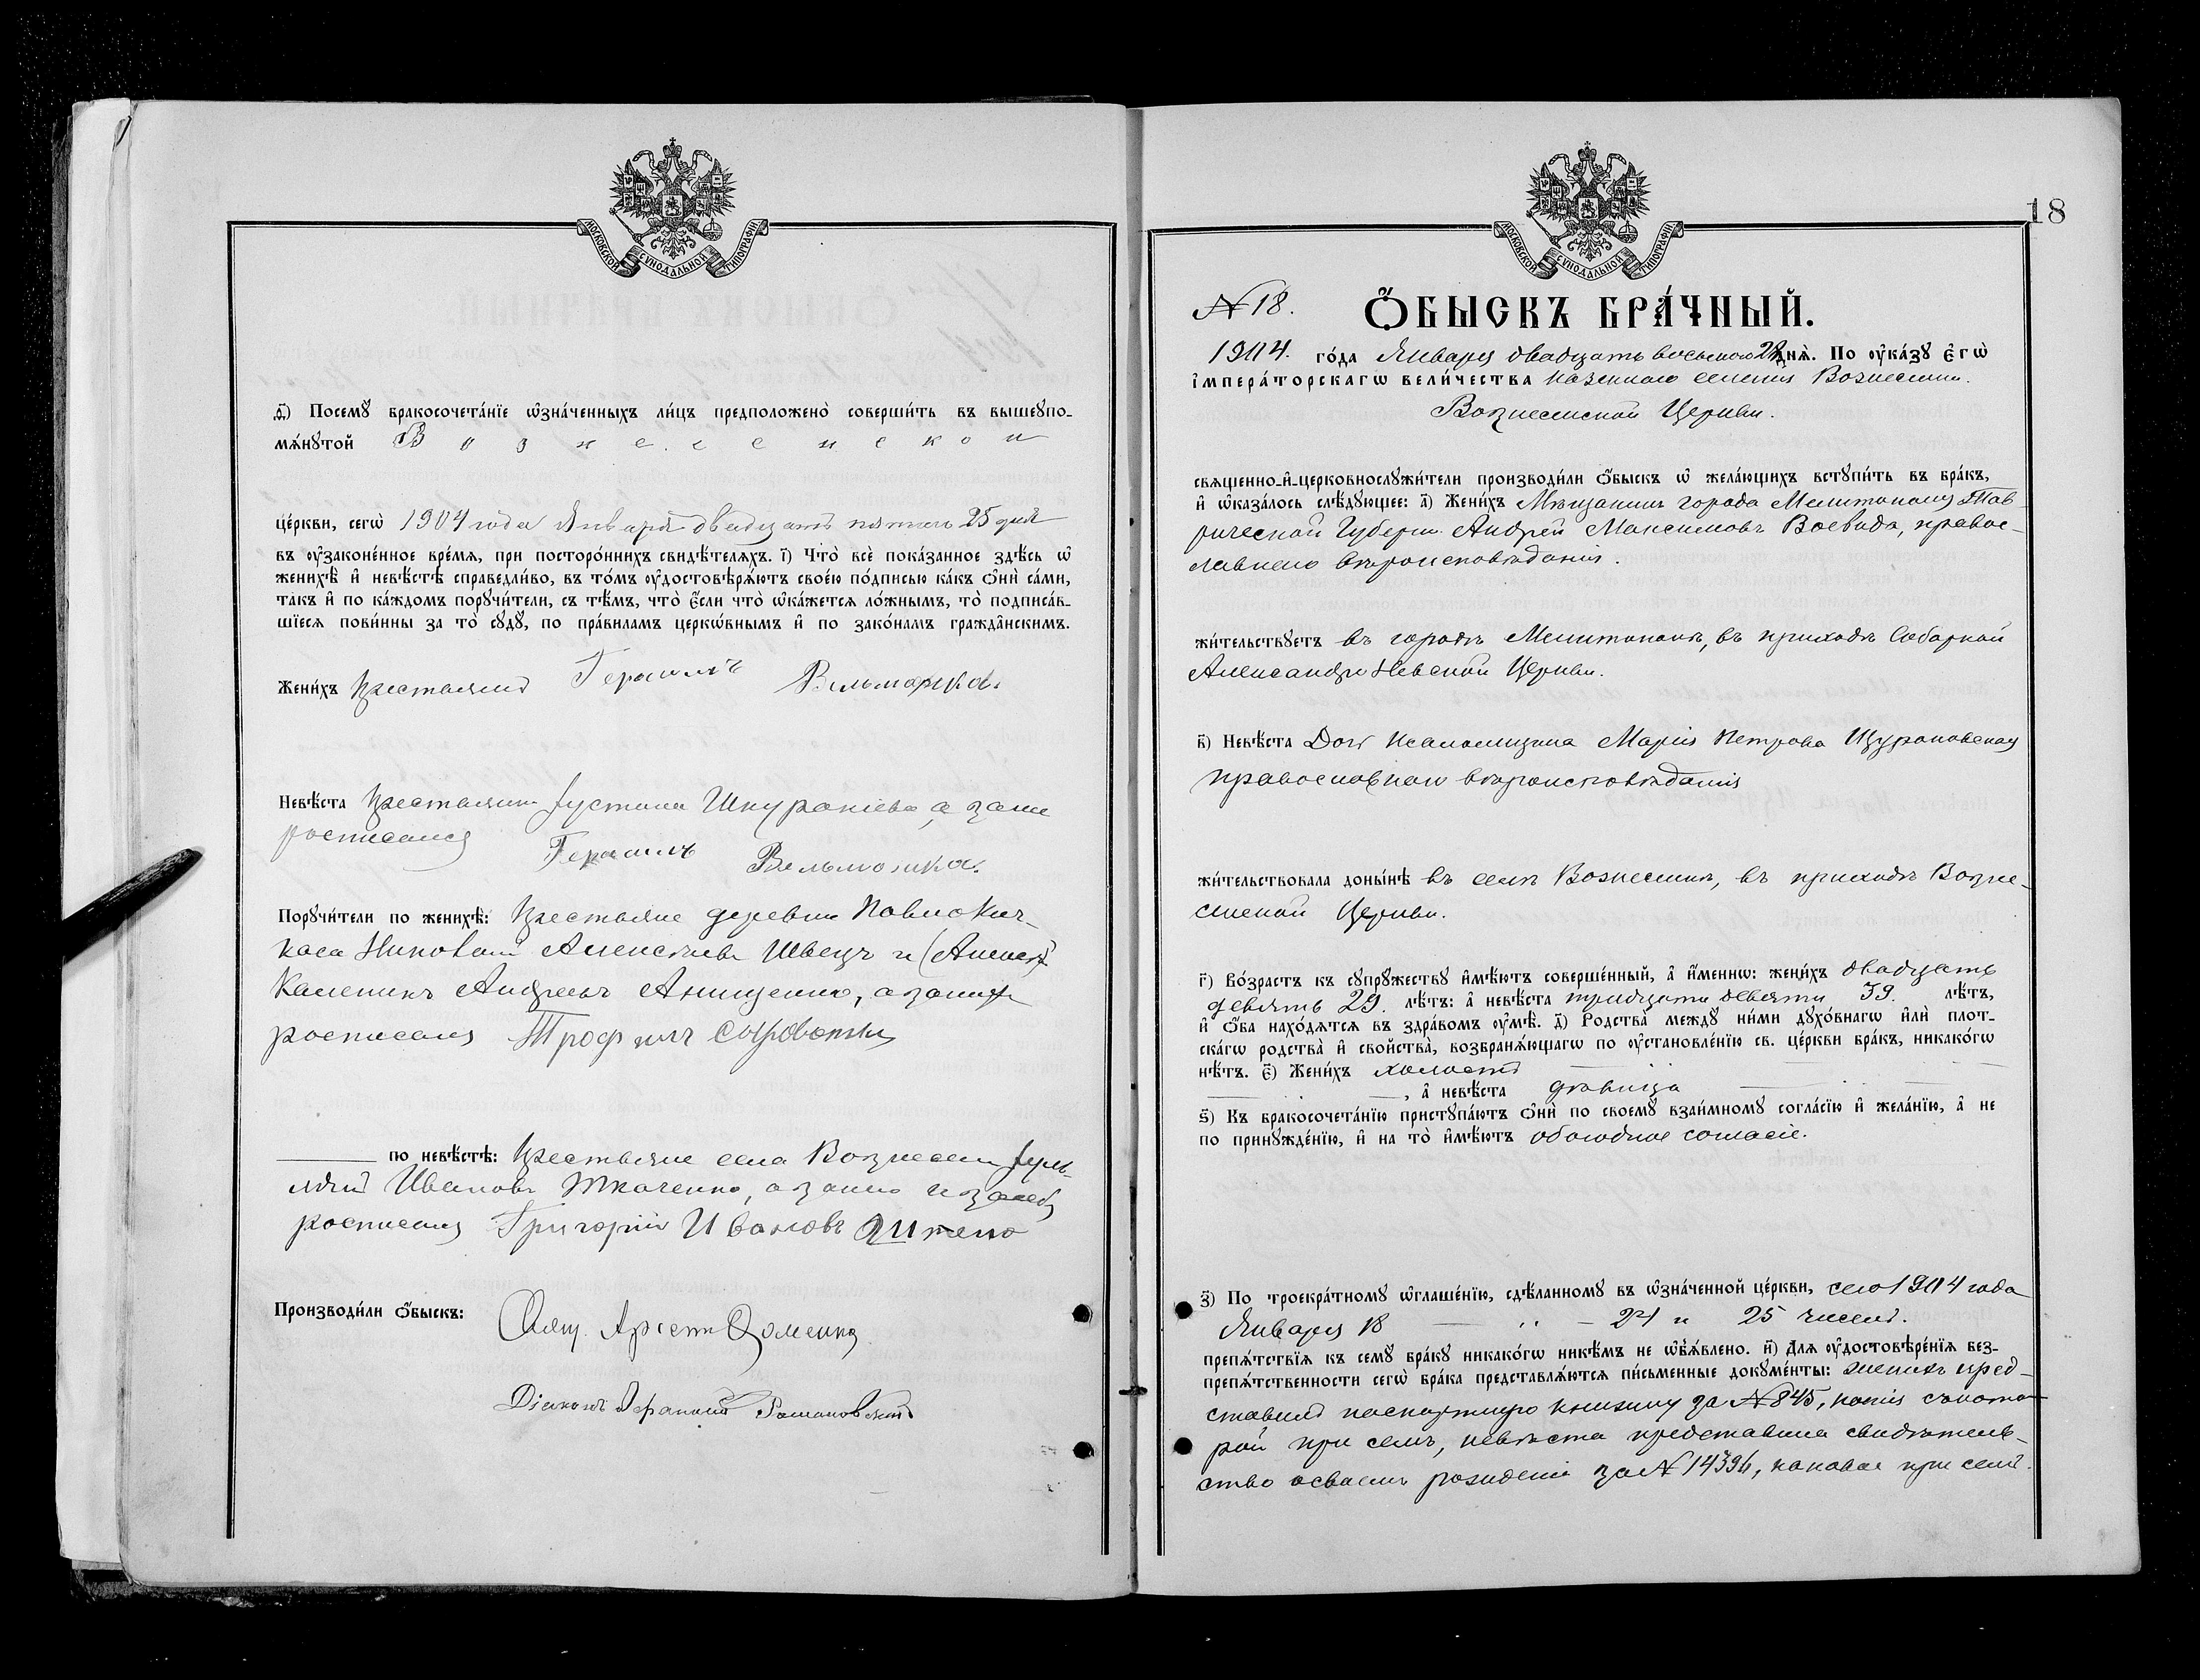 МОСКОВСКОЙ СУНОДАЛЬНОЙ ТИПОГРАФІИ.
Ѳ҃) Посемꙋ̀ бракосочета́нїе ѡ҆зна́ченныхъ ли́цъ предположено̀ соверши́ть въ вышеꙋпо-
мѧ́нꙋтой Вознесенской
це́ркви, сегѡ̀ 1904 года Января двадцать пятого 25 дня
въ ᲂу҆законе́нное вре́мѧ, при посторо́ннихъ свидѣ́телѧхъ. і҃) Что̀ всѐ пока́занное здѣ́сь ѡ҆
женихѣ̀ и҆ невѣ́стѣ справедли́во, въ то́мъ ᲂу҆достовѣрѧ́ютъ свое́ю по́дписью ка́къ ѻ҆нѝ са́ми,
та́къ и҆ по ка́ждомъ порꙋчи́тели, съ тѣ́мъ, что̀ є҆́сли что̀ ѡ҆ка́жетсѧ ло́жнымъ, то̀ подписа́в-
шїесѧ пови́нны за то̀ сꙋдꙋ̀, по пра́виламъ церко́внымъ и҆ по зако́намъ гражда̑нскимъ.
Жени́хъ Крестьянинъ Герасимъ
Невѣ́ста Крестьянка Іустина а зане
росписался Герасимъ
Порꙋчи́тели по женихѣ̀: Крестьяне деревни Павло Кич-
каса Алексѣевъ Швецъ и
Андреевъ Анищенко, а за нихъ
росписался Трофимъ
по невѣ́стѣ: Крестьяне села Вознесенки
Ивановъ Ткаченко, а за него и за себя
росписался Григорій Ивановъ
Производи́ли ѻ҆́быскъ: Свящ. Арсеній
Діаконъ
18
МОСКОВСКОЙ СУНОДАЛЬНОЙ ТИПОГРАФІИ.
№ 18. Ѻ҆́БЫСКЪ БРА́ЧНЫЙ.
1904. го́да Января двадцать восьмого 28 днѧ̀. По ᲂу҆ка́зꙋ є҆гѡ̀
і҆мпера́торскагѡ вели́чества казенного селенія Вознесенки.
Вознесенской Церкви.
свѧще́нно-и҆-церковнослꙋжи́тели производи́ли ѻ҆́быскъ ѡ҆ жела́ющихъ встꙋпи́ть въ бра́къ,
и҆ ѡ҆каза́лось слѣ́дꙋющее: а҃) Жени́хъ Мѣщанинъ города Мелитополя Тав-
рической Губерніи Андрей Максимовъ Воевода, правос-
лавнаго вѣроисповѣданія.
жи́тельствꙋетъ въ городѣ Мелитополѣ, въ приходѣ Соборной
Александро Невской Церкви.
в҃) Невѣ́ста Дочь псаломщика Марія Петрова
православнаго вѣроисповѣданія
жи́тельствовала доны́нѣ въ селѣ Вознесенкѣ, въ приходѣ Возне-
сенской Церкви.
г҃) Во́зрастъ къ сꙋпрꙋ́жествꙋ и҆мѣ́ютъ соверше́нный, а҆ и҆́меннѡ: жени́хъ двадцать
девять 29. лѣ́тъ: а҆ невѣ́ста тридцати девяти 39. лѣ́тъ,
и҆ ѻ҆́ба нахо́дѧтсѧ въ здра́вомъ ᲂу҆мѣ̀. д҃) Родства̀ междꙋ̀ ни́ми дꙋхо́внагѡ и҆лѝ плот-
ска́гѡ родства̀ и҆ свойства̀, возбранѧ́ющагѡ по ᲂу҆становле́нїю св. це́ркви бра́къ, никако́гѡ
нѣ́тъ. є҃) Жени́хъ холостъ
, а҆ невѣ́ста дѣвица
ѕ҃) Къ бракосочета́нїю пристꙋпа́ютъ ѻ҆нѝ по своемꙋ̀ взаи́мномꙋ согла́сїю и҆ жела́нїю, а҆ не
по принꙋжде́нїю, и҆ на то̀ и҆мѣ́ютъ обоюдное согласіе.
з҃) По троекра́тномꙋ ѡ҆глаше́нїю, сдѣ́ланномꙋ въ ѡ҆зна́ченной це́ркви, сего 1904 года
Января 18 24 и 25 чиселъ.
препѧ́тствїѧ къ семꙋ̀ бра́кꙋ никако́гѡ никѣ́мъ не ѡ҆б̾ѧ́влено. и҃) Длѧ ᲂу҆достовѣре́нїѧ без-
препѧ́тственности сегѡ̀ бра́ка представлѧ́ютсѧ пи́сьменные докꙋме́нты: женихъ пред-
ставилъ паспортную книжку за № 845, копія съ кото-
рой при семъ, невѣста представила свидѣтель-
ство о своемъ рожденіи за № 14396, каковое при семъ.